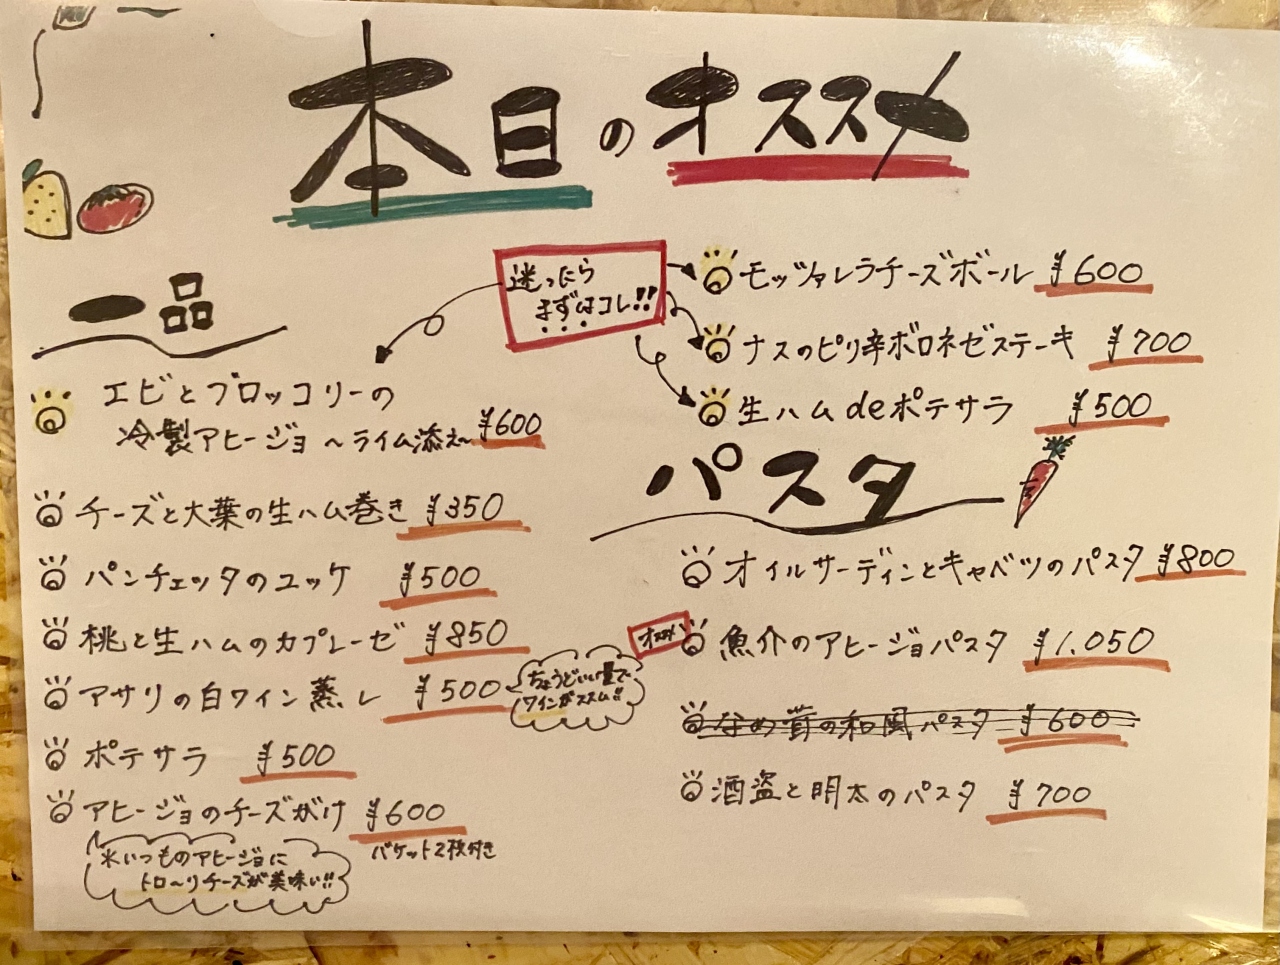 本日のオススメ
一品
迷ったら
まずはコレ!!
エビとブロッコリーの
冷製アヒージョ ~ライム添え~ ¥600
チーズと大葉の生ハム巻き ¥350
パンチェッタのユッケ ¥500
桃と生ハムのカプレーゼ ¥850
アサリの白ワイン蒸し ¥500
ちょうどいい量で
ワインがススム!!
ポテサラ ¥500
アヒージョのチーズがけ ¥600
バケット2枚付き
※いつものアヒージョに
トロ~リチーズが美味い!!
モッツァレラチーズボール ¥600
ナスのピリ辛ボロネゼステーキ ¥700
生ハムdeポテサラ ¥500
パスタ
オイルサーディンとキャベツのパスタ ¥800
オススメ 魚介のアヒージョパスタ ¥1,050
なめ茸の和風パスタ ¥600
酒盗と明太のパスタ ¥700